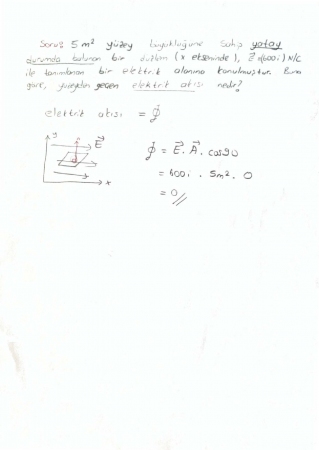 Soru: 5 m² yüzey büyüklüğüne sahip yatay
durumda bulunan bir dutlem (x ekseninde), E =(600i) N/C
ile tanımlanan bir elektrik alanına konulmuştur. Buna
göre, yüzeyden geçen elektrik akısı nedir?
elektrik akısı = ϕ
y
E
x
ϕ = E . A . cos90
= 600i . 5m² . 0
= 0 //